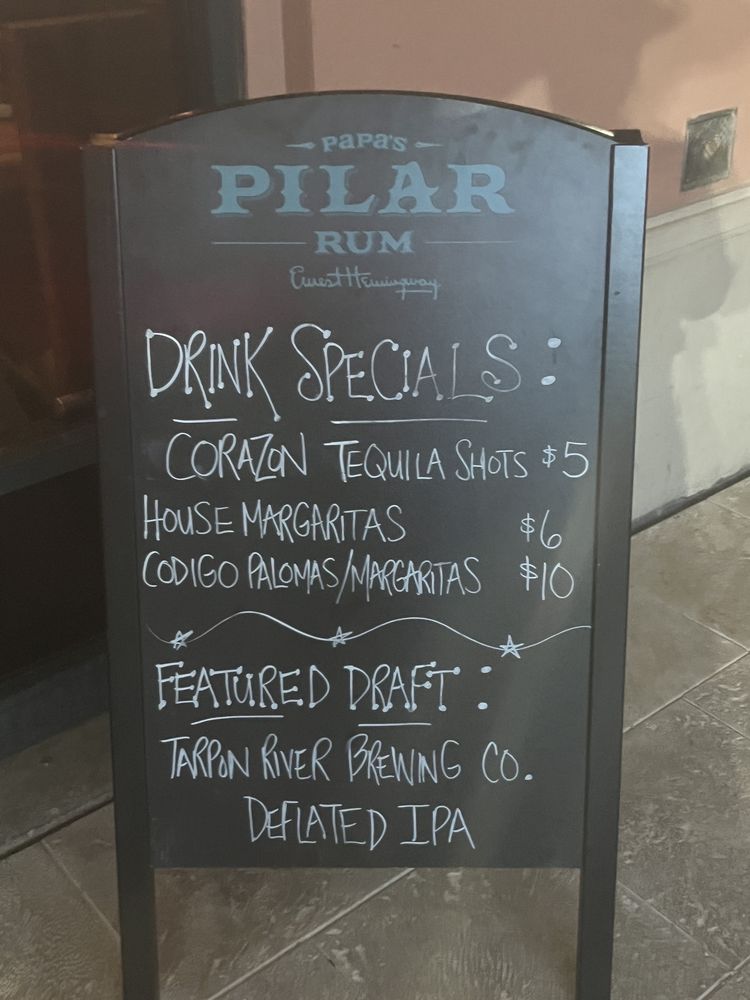 PaPa's
PILAR
RUM
Ernest Hemingway
DRINK SPECIALS:
CORAZON TEQUILA SHOTS $5
HOUSE MARGARITAS $6
CODIGO PALOMAS/MARGARITAS $10
FEATURED DRAFT:
TARPON RIVER BREWING CO.
DEFLATED IPA